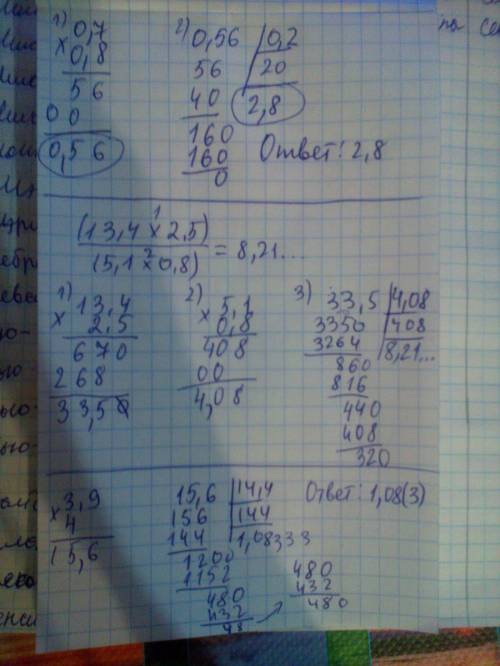 1) 0,7
× 0,8
56
00
0,56
2) 0,56 | 0,2
56 | 20
40 2,8
160
160
0
Ответ: 2,8
(13,4 × 2,5)
(5,1 × 0,8) = 8,21...
1) 13,4
× 2,5
670
268
33,50
2) 5,1
× 0,8
408
00
4,08
3) 33,5 | 4,08
3350 | 408
3264 8,21...
860
816
440
408
320
3,9
× 4
15,6
15,6 | 14,4
156 | 144
144 1,08333
1200
1152
480
432
48
480
432
480
Ответ: 1,08(3)